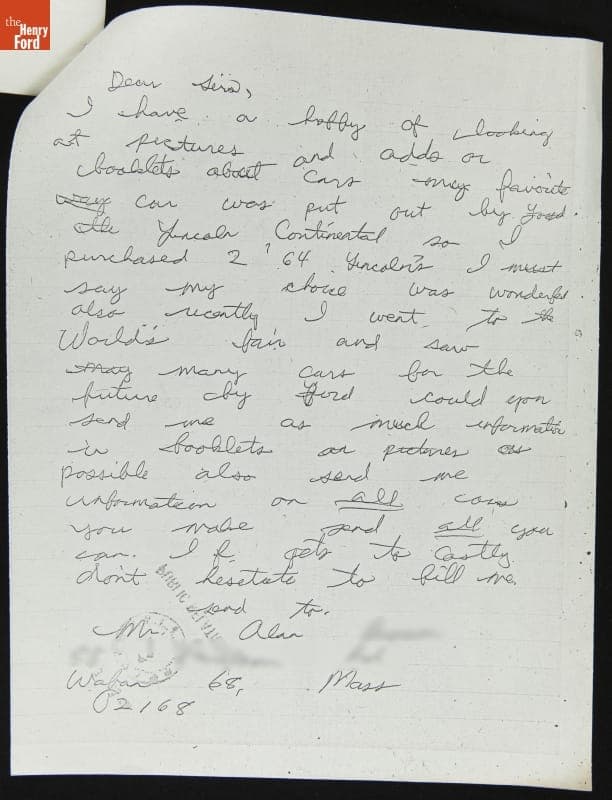 the
Henry
Ford
Dear Sirs,
I have a hoffy of looking
at pictures and adds or
booklets about cars my favorite
car was put out by you
the Lincoln Continental so I
purchased 2 '64 Lincoln's I must
say my choice was wonderful
also recently I went to the
World's fair and saw
may many cars for the
future by Ford could you
send me as much information
in booklets or pictures as
possible also send me
information on all cars
you make send all you
can. If gets to costly
don't hesetate to bill me.
send to.
Mr. Alan
Waban 68, Mass
02168